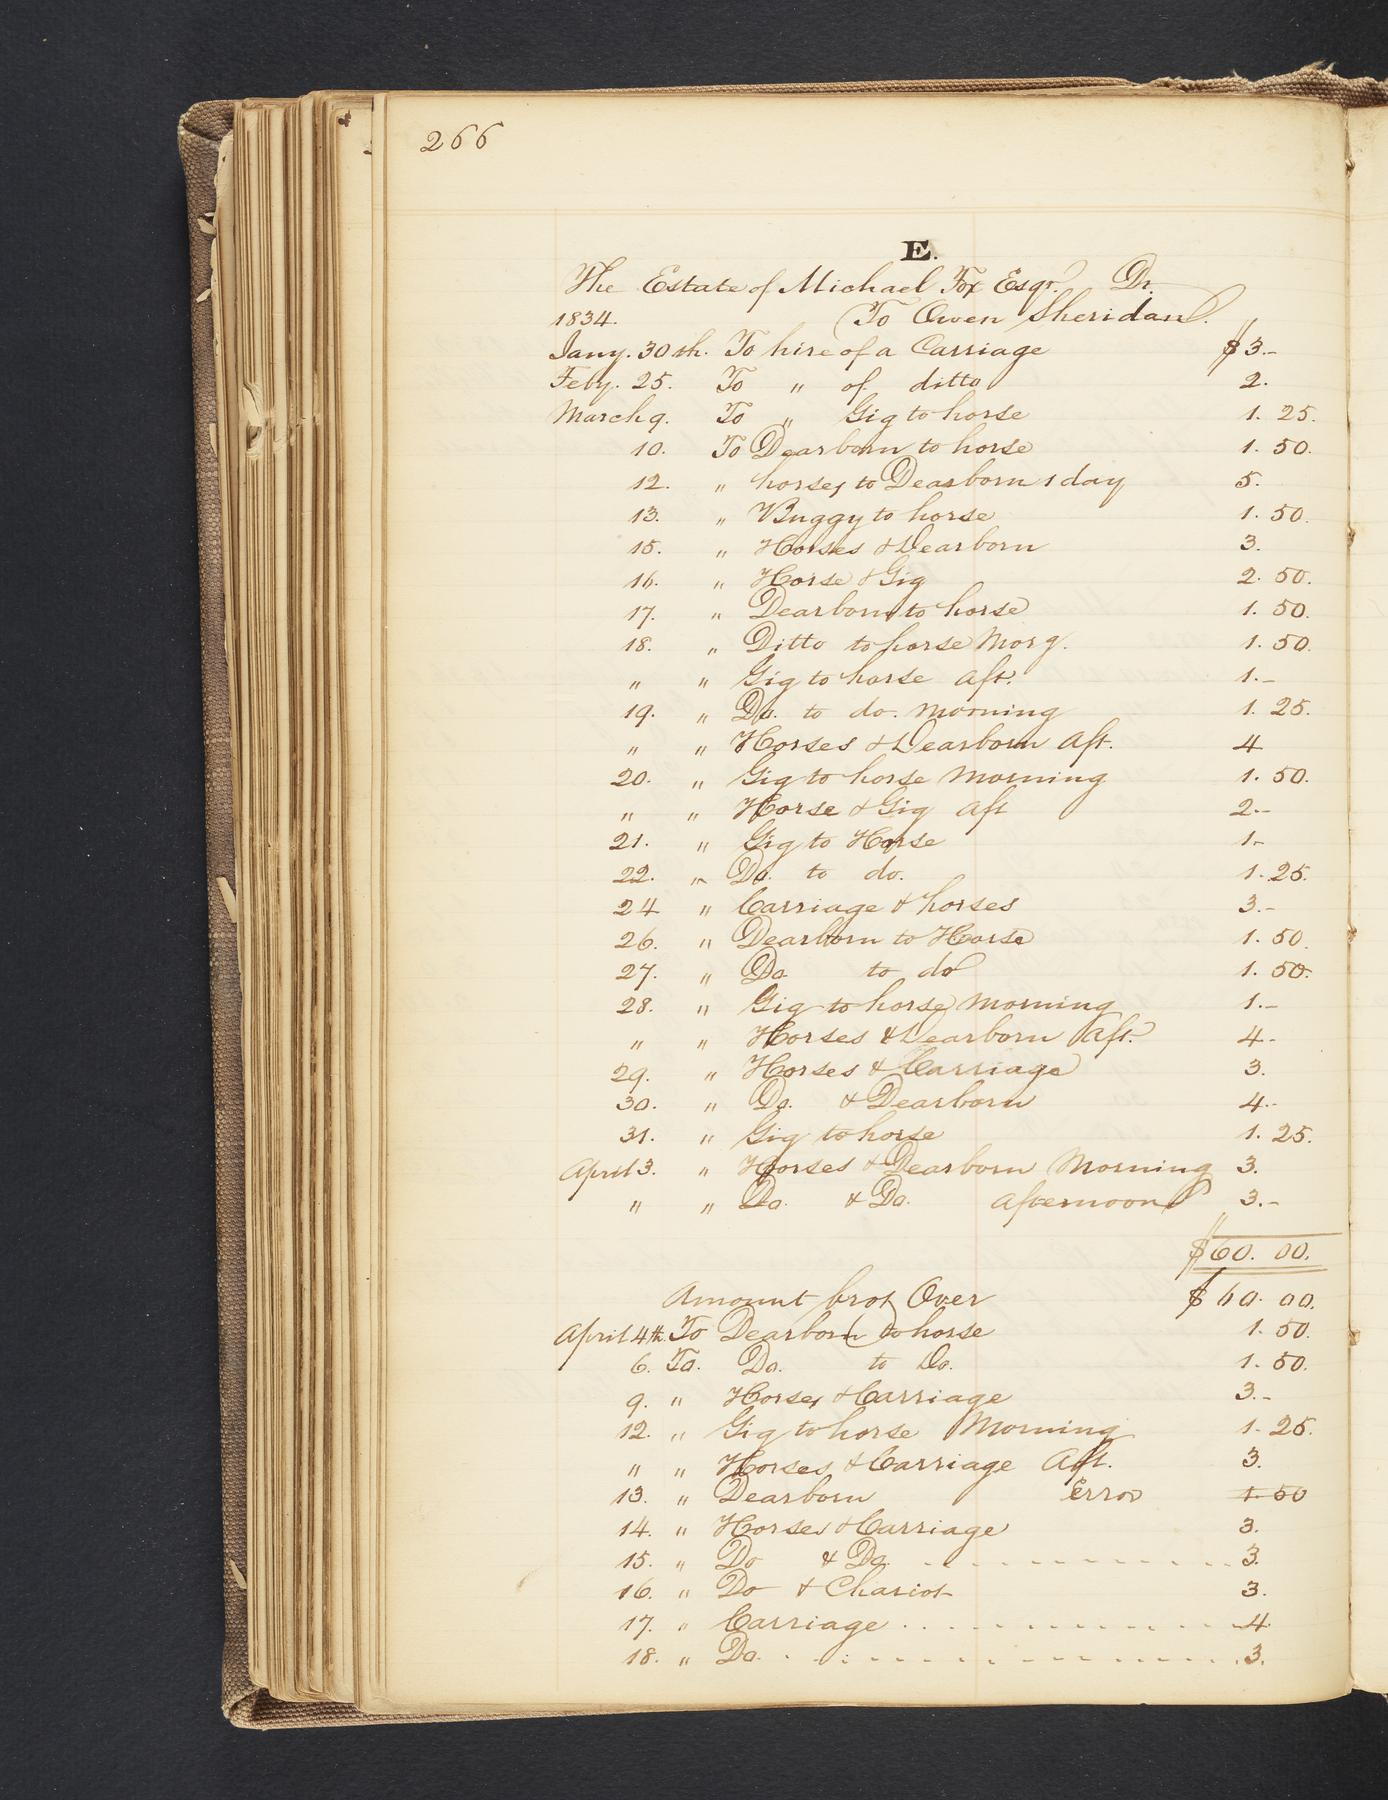 266
E.
The Estate of Michael Fox Esqr. Dr.
1834. To Owen Sheridan.
Jany. 30th. To hire of a Carriage $3.-
Feby. 25. To " of ditto 2.
March 9. To " Gig to horse 1. 25.
10. To Dearborn to horse 1. 50.
12. " horses to Dearborn 1 day 5.
13. " Buggy to horse 1. 50.
15. " Horses & Dearborn 3.
16. " Horse & Gig 2. 50.
17. " Dearborn to horse 1. 50.
18. " Ditto to horse Morg. 1. 50.
" " Gig to horse Aft. 1.-
19. " Do. to do. Morning 1. 25.
" " Horses & Dearborn Aft. 4
20. " Gig to horse Morning 1. 50.
" " Horse & Gig Aft 2.-
21. " Gig to Horse 1-
22. " Do. to do. 1. 25.
24 " Carriage & horses 3.-
26. " Dearborn to Horse 1. 50.
27. " Do. to do 1. 50.
28. " Gig to horse Morning 1.-
" " Horses & Dearborn Aft. 4-
29. " Horses & Carriage 3.
30. " Do. & Dearborn 4.-
31. " Gig to horse 1. 25.
April 3. " Horses & Dearborn Morning 3.
" " Do. & Do. Afternoon 3.-
$60. 00.
Amount brot Over $60. 00.
April 4th. To Dearborn to horse 1. 50.
6. To. Do. to Do. 1. 50.
9. " Horses & Carriage 3.-
12. " Gig to horse Morning 1. 25.
" " Horses & Carriage Aft. 3.
13. " Dearborn Error 1. 50
14. " Horses & Carriage 3.
15. " Do & Do. 3.
16. " Do & Chariot 3.
17. " Carriage 4.
18. " Do. 3.